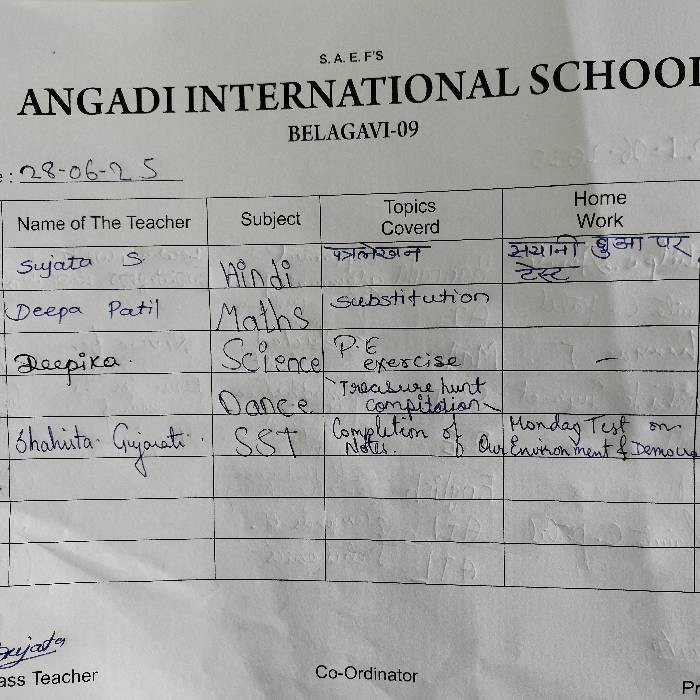 S. A. E. F'S
ANGADI INTERNATIONAL SCHOOL
BELAGAVI-09
: 28-06-25
Name of The Teacher Subject Topics Coverd Home Work
Sujata S Hindi पत्रलेखन सयानी बुआ पर टेस्ट
Deepa Patil Maths substitution
Deepika. Science P.E exercise –
Dance Treasure hunt compitation
Shahista Gujarati. SST Completion of Notes. Monday Test on Our Environment & Democra
Sujata
ass Teacher Co-Ordinator Pr